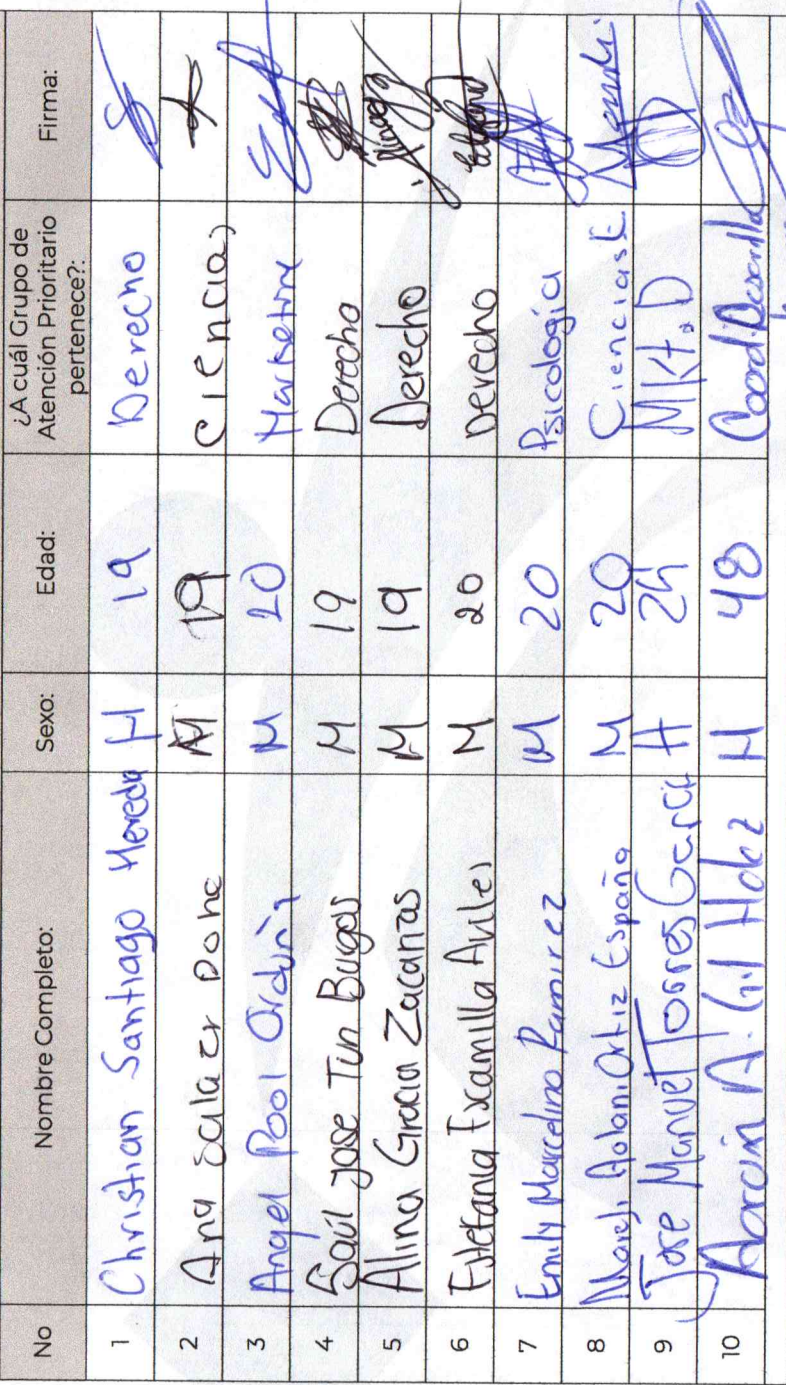 No Nombre Completo: Sexo: Edad: ¿A cuál Grupo de Atención Prioritario pertenece?: Firma:
1 Christian Santiago Heredia H 19 Derecho
2 Ana Salazar M 19 Ciencias
3 Angel Pool Orduña M 20 Marketing
4 Saúl Jose Tun Burgos M 19 Derecho
5 Allina Gracia Zacarias M 19 Derecho
6 Estefania Escamilla Aviles M 20 Derecho
7 Emily Marcelino Ramirez M 20 Psicología
8 Ortiz España M 20 Ciencias
9 Jose Manuel Torres Garcia H 24 Mkt. D
10 A. Gil Hdez H 48 Coord.